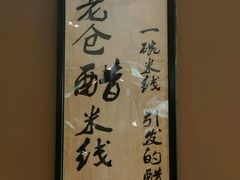 老仓醋米线
一碗米线 引发的醋